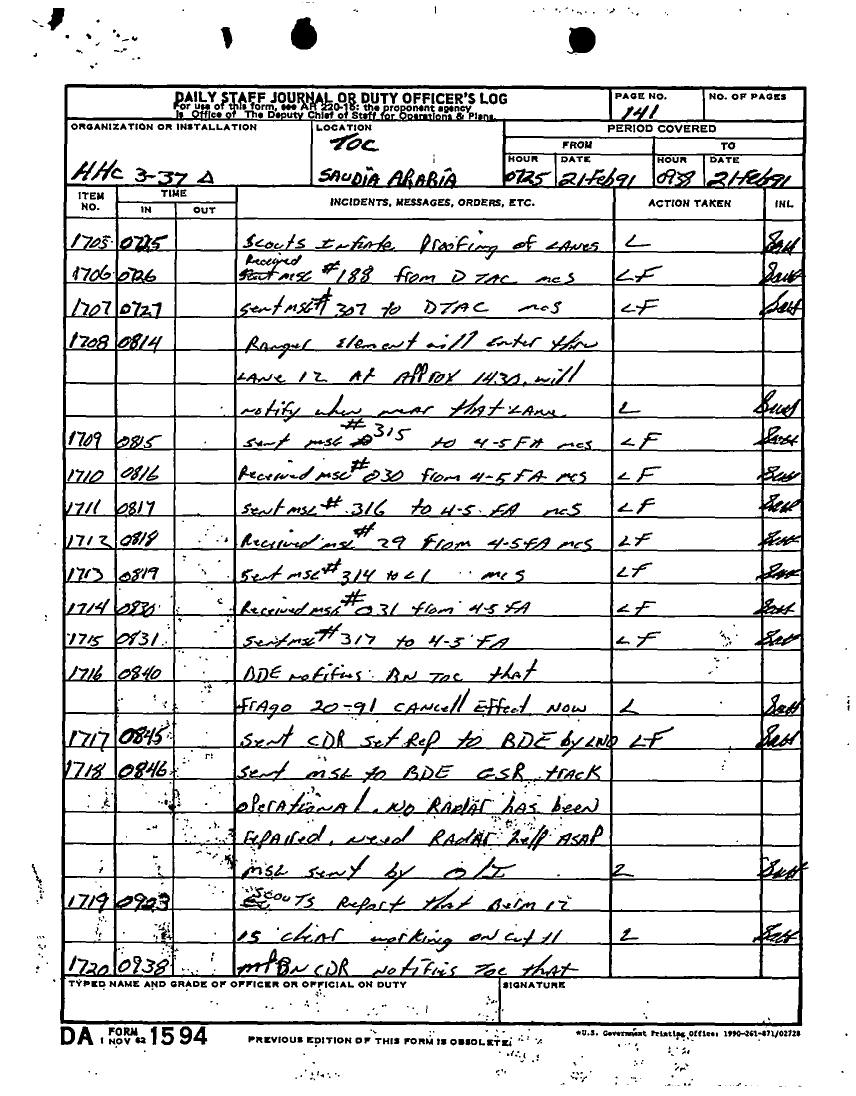 DAILY STAFF JOURNAL OR DUTY OFFICER'S LOG
For use of this form, see AR 220-15: the proponent agency
is Office of The Deputy Chief of Staff for Operations & Plans.
PAGE NO.
141
NO. OF PAGES
ORGANIZATION OR INSTALLATION
HHC 3-37 Δ
LOCATION
TOC
SAUDIA ARABIA
PERIOD COVERED
FROM TO
HOUR DATE HOUR DATE
0725 21 Feb 91 0938 21 Feb 91
ITEM NO. TIME IN OUT INCIDENTS, MESSAGES, ORDERS, ETC. ACTION TAKEN INL
1705 0725 Scouts Initiate Proofing of LANES L
Received
1706 0726 msg #188 from DTAC mcs LF
1707 0727 sent msg# 307 to DTAC mcs LF
1708 0814 Ranger Element will Enter thru
LANE 12 At Approx 1430. will
notify when near that LANE L
1709 0815 sent msg #315 to 4-5 FA mcs LF
1710 0816 Received msg #030 from 4-5 FA mcs LF
1711 0817 sent msg# 316 to 4-5 FA mcs LF
1712 0818 Received msg #29 from 4-5 FA mcs LF
1713 0819 Sent msg# 314 to mcs LF
1714 0830 Received msg #031 from 4-5 FA LF
1715 0831 sent msg #317 to 4-5 FA LF
1716 0840 BDE notifies BN TOC that
frago 20-91 CANcell Effect NOW L
1717 0845 sent CDR set Rep to BDE by LNO LF
1718 0846 sent msg to BDE GSR track
operational. NO RADAR has been
repaired. need RADAR help ASAP
msg sent by
1719 0903 Scouts Report that Berm 12
is clear working on cut 11
1720 0938 BN CDR notifies TOC that
TYPED NAME AND GRADE OF OFFICER OR OFFICIAL ON DUTY SIGNATURE
DA FORM 1 NOV 62 1594 PREVIOUS EDITION OF THIS FORM IS OBSOLETE. *U.S. Government Printing Office: 1990-261-871/02728